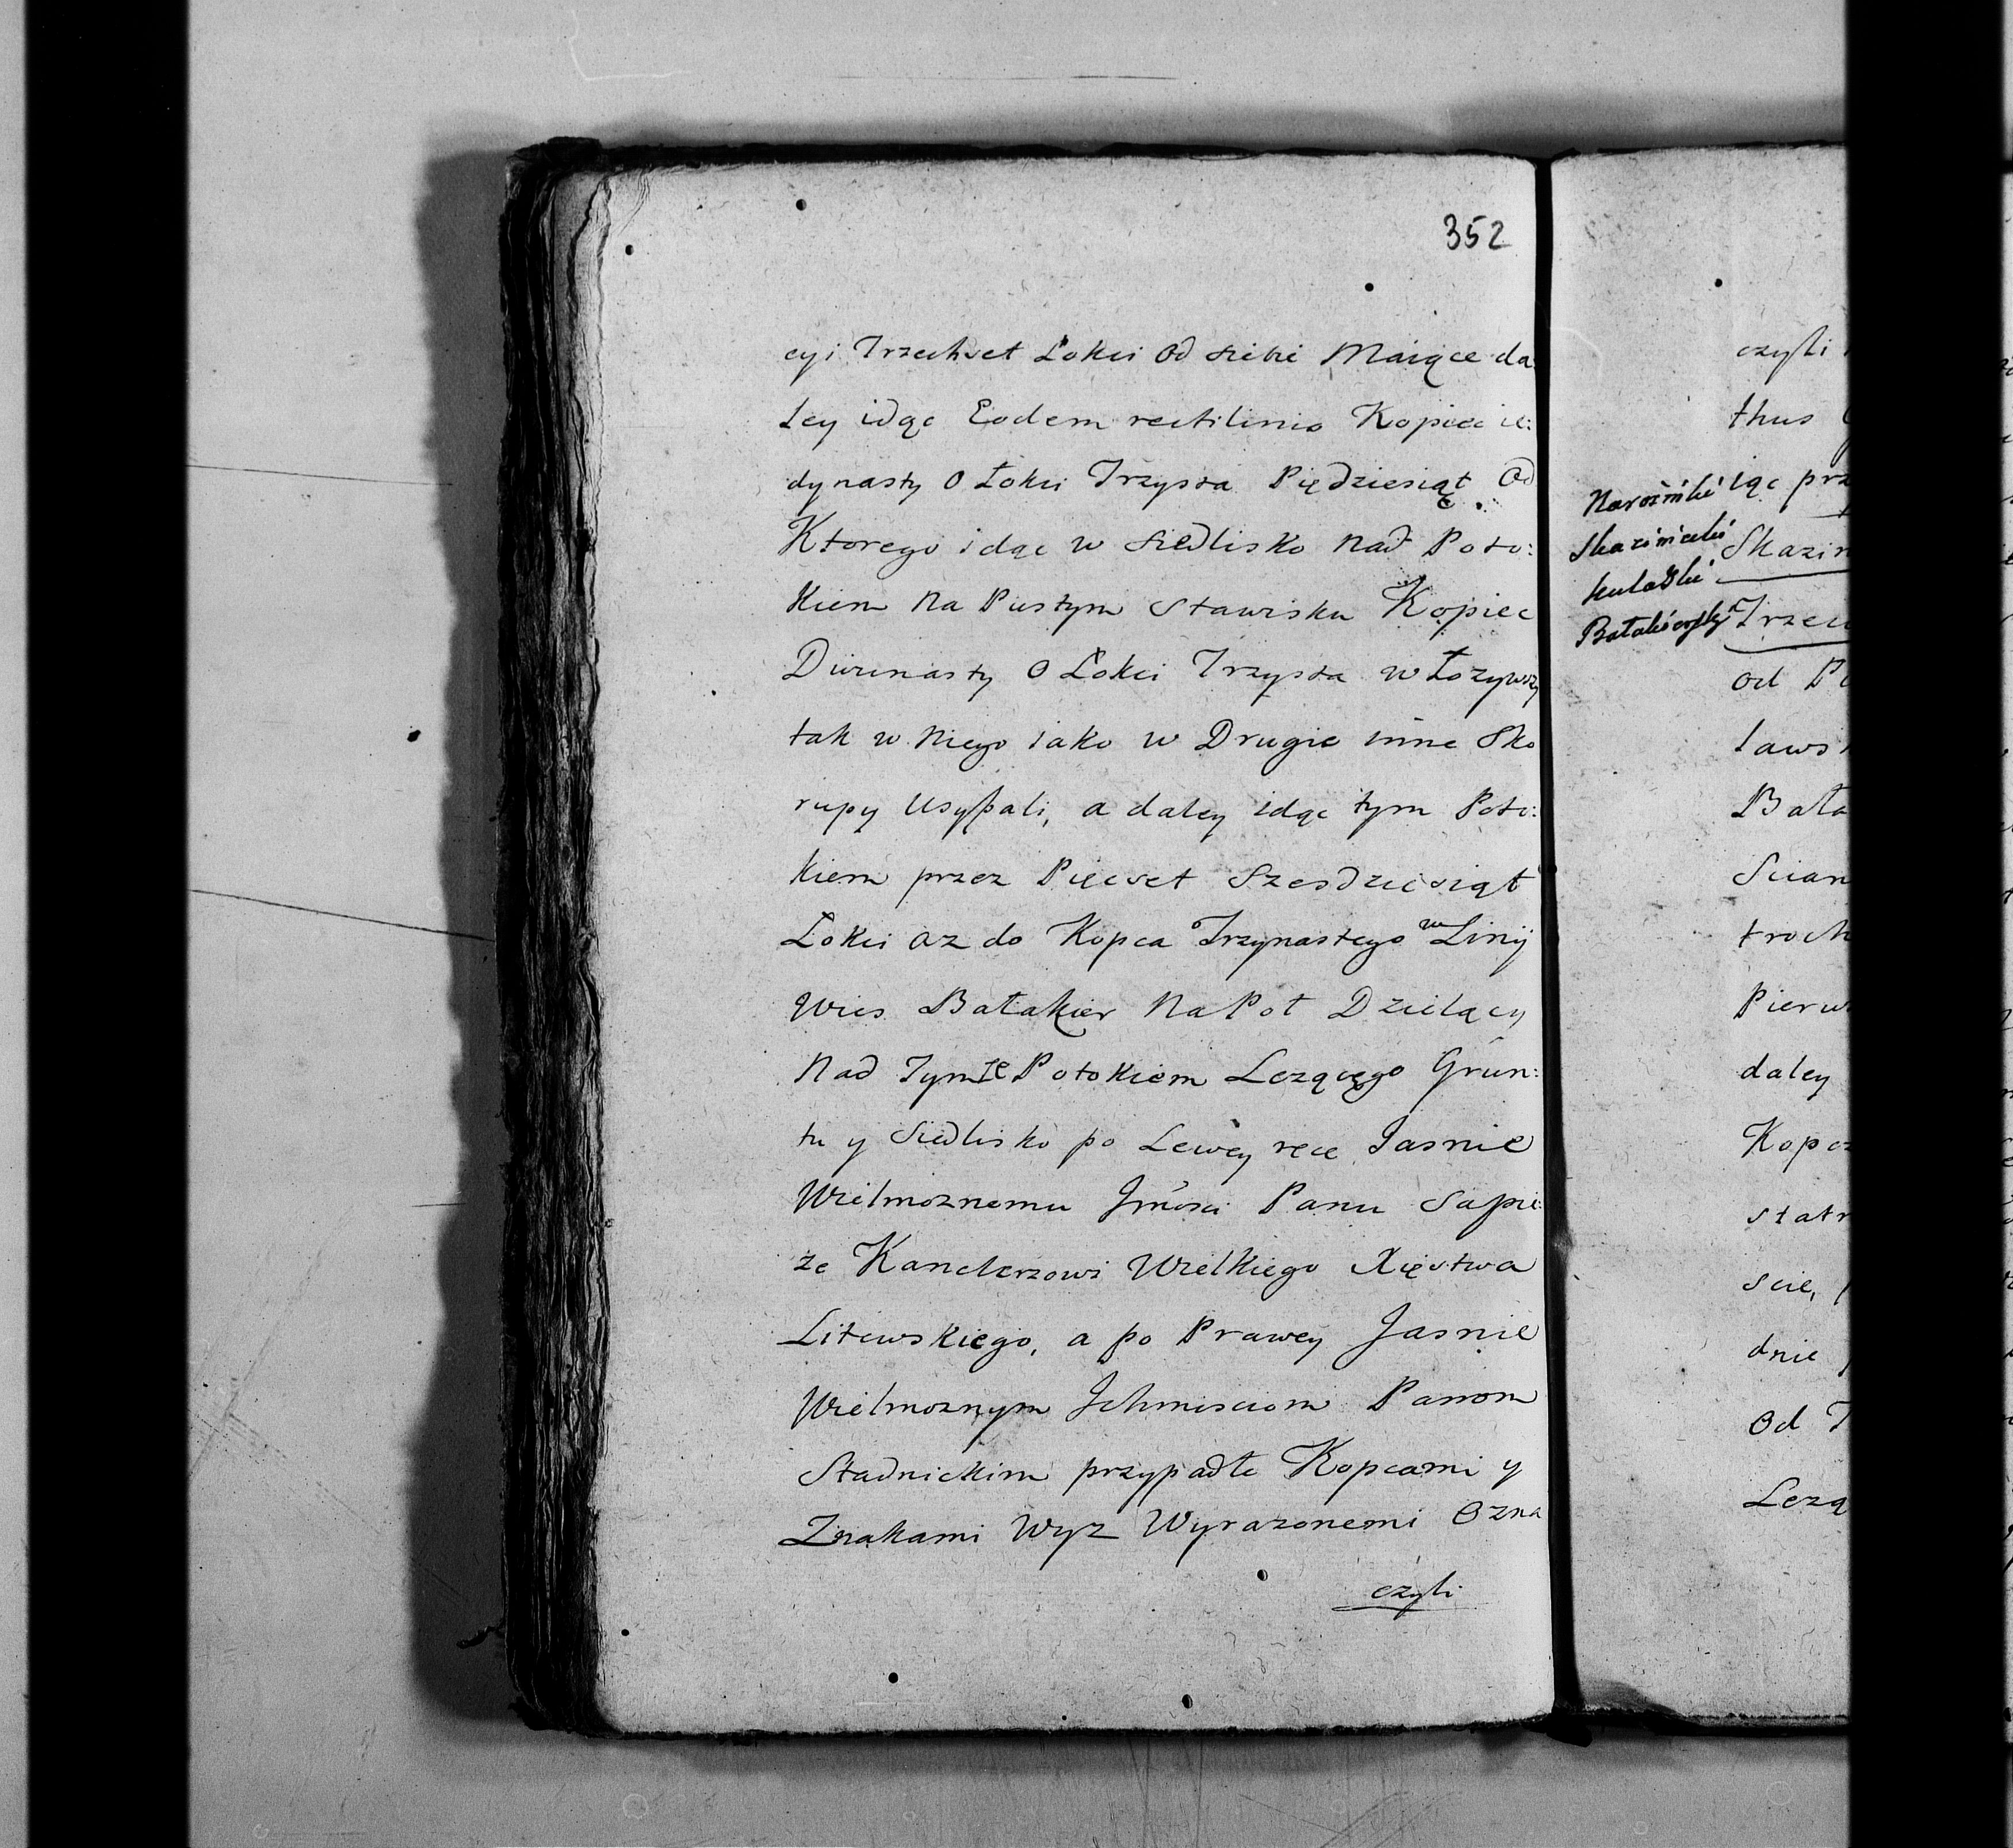 352
cyi Trzechset Łokci od siebie Maiące da:
ley idąc Eodem rectilinio Kopiec ie:
dynasty o Łokci Trzysta Pięćdziesiąt Od
Ktorego idąc w siedlisko nad Poto:
kiem na Pustym Stawisku Kopiec
Dwunasty o Łokci Trzysta w Łozywszy
tak w niego iako w Drugie inne Sko
rupy Usypali, a daley idąc tym Poto:
kiem przez Piecset Szesdziesiąt
Łokci az do Kopca Trzynastego w Linij
Wies Bałakier Na Poł Dzielący
Nad Tymze Potokiem Lezącego Grun:
tu y Siedlisko po Lewey ręce Jasnie
Wielmoznemu Jmosci Panu Sapie:
ze Kanclerzowi Wielkiego Xięstwa
Litewskiego, a po Prawey Jasnie
Wielmoznym Ichmosciom Panom
Stadnickim przypadłe Kopcami y
Znakami Wyz Wyrazonemi Ozna
czyli
czyli
thus
iąc prz
Skazin
Trzec
od P
laws
Bała
Scian
troch
Pierw
daley
Kopcz
statn
scie,
dnie
Od T
Lezą